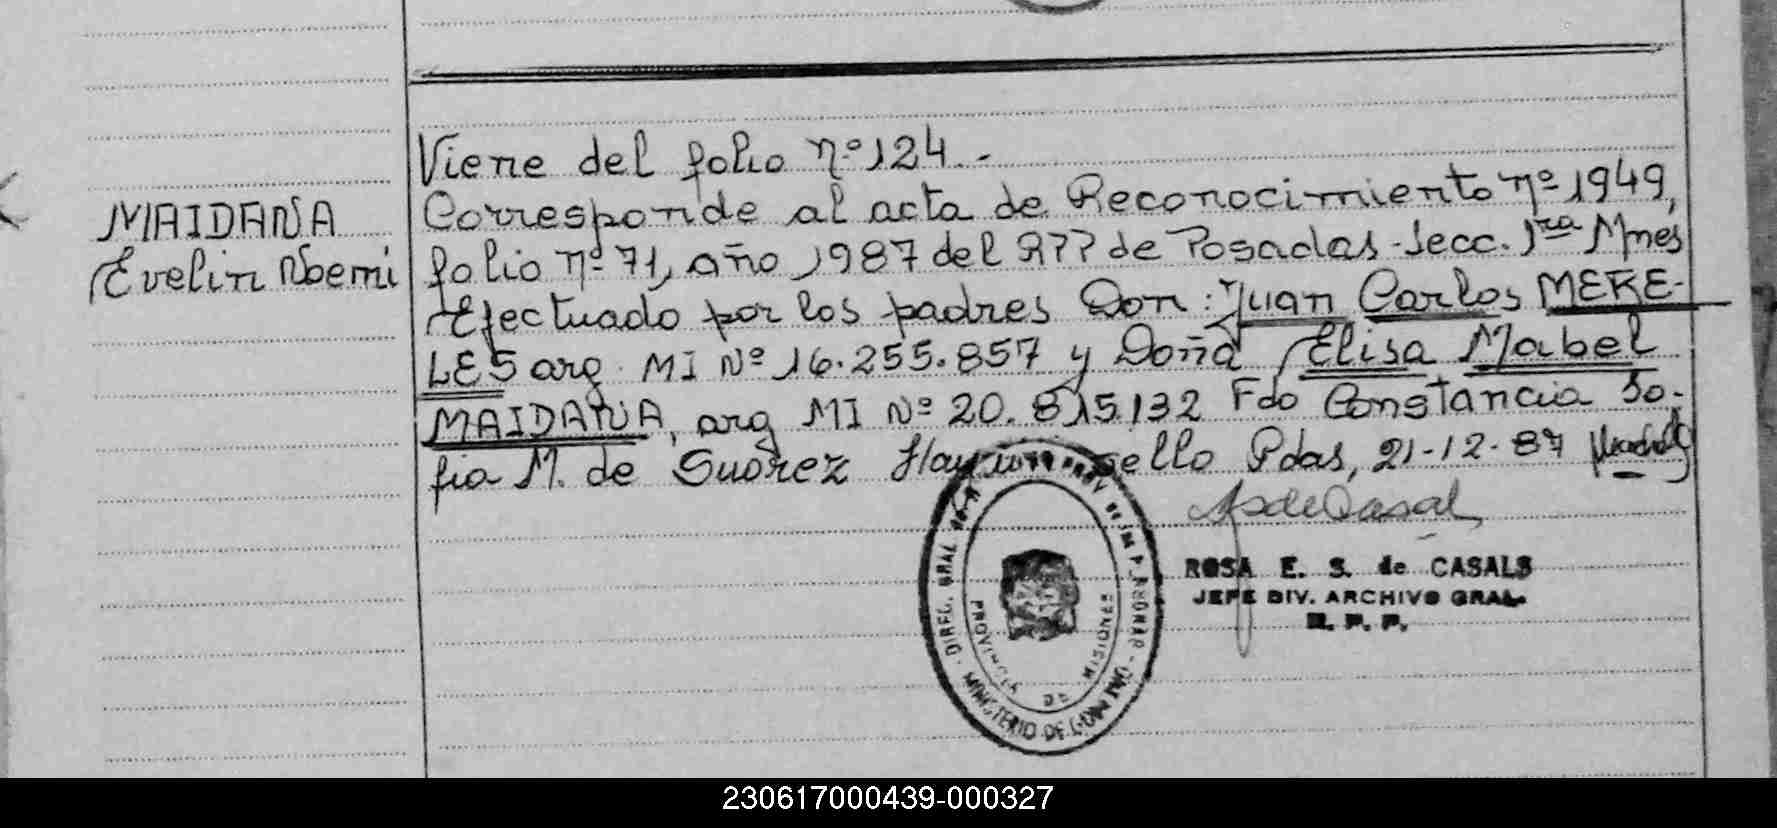 Viene del folio nº 124.-
MAIDANA
Evelin Noemi
Corresponde al acta de Reconocimiento nº 1949,
folio nº 71, año 1987 del RPP de Posadas-Secc. 1ra Mnes
Efectuado por los padres Don: Juan Carlos MERE-
LES arg. MI Nº 16.255.857 y Doña Elisa Mabel
MAIDANA, arg MI Nº 20.815.132 Fdo Constancia So-
fia M. de Suárez Hay un sello Pdas, 21-12-87
ROSA E. S. de CASALS
JEFE DIV. ARCHIVO GRAL.
R. P. P.
DIREC. GRAL
PROVINCIA DE MISIONES
MINISTERIO DE
230617000439-000327